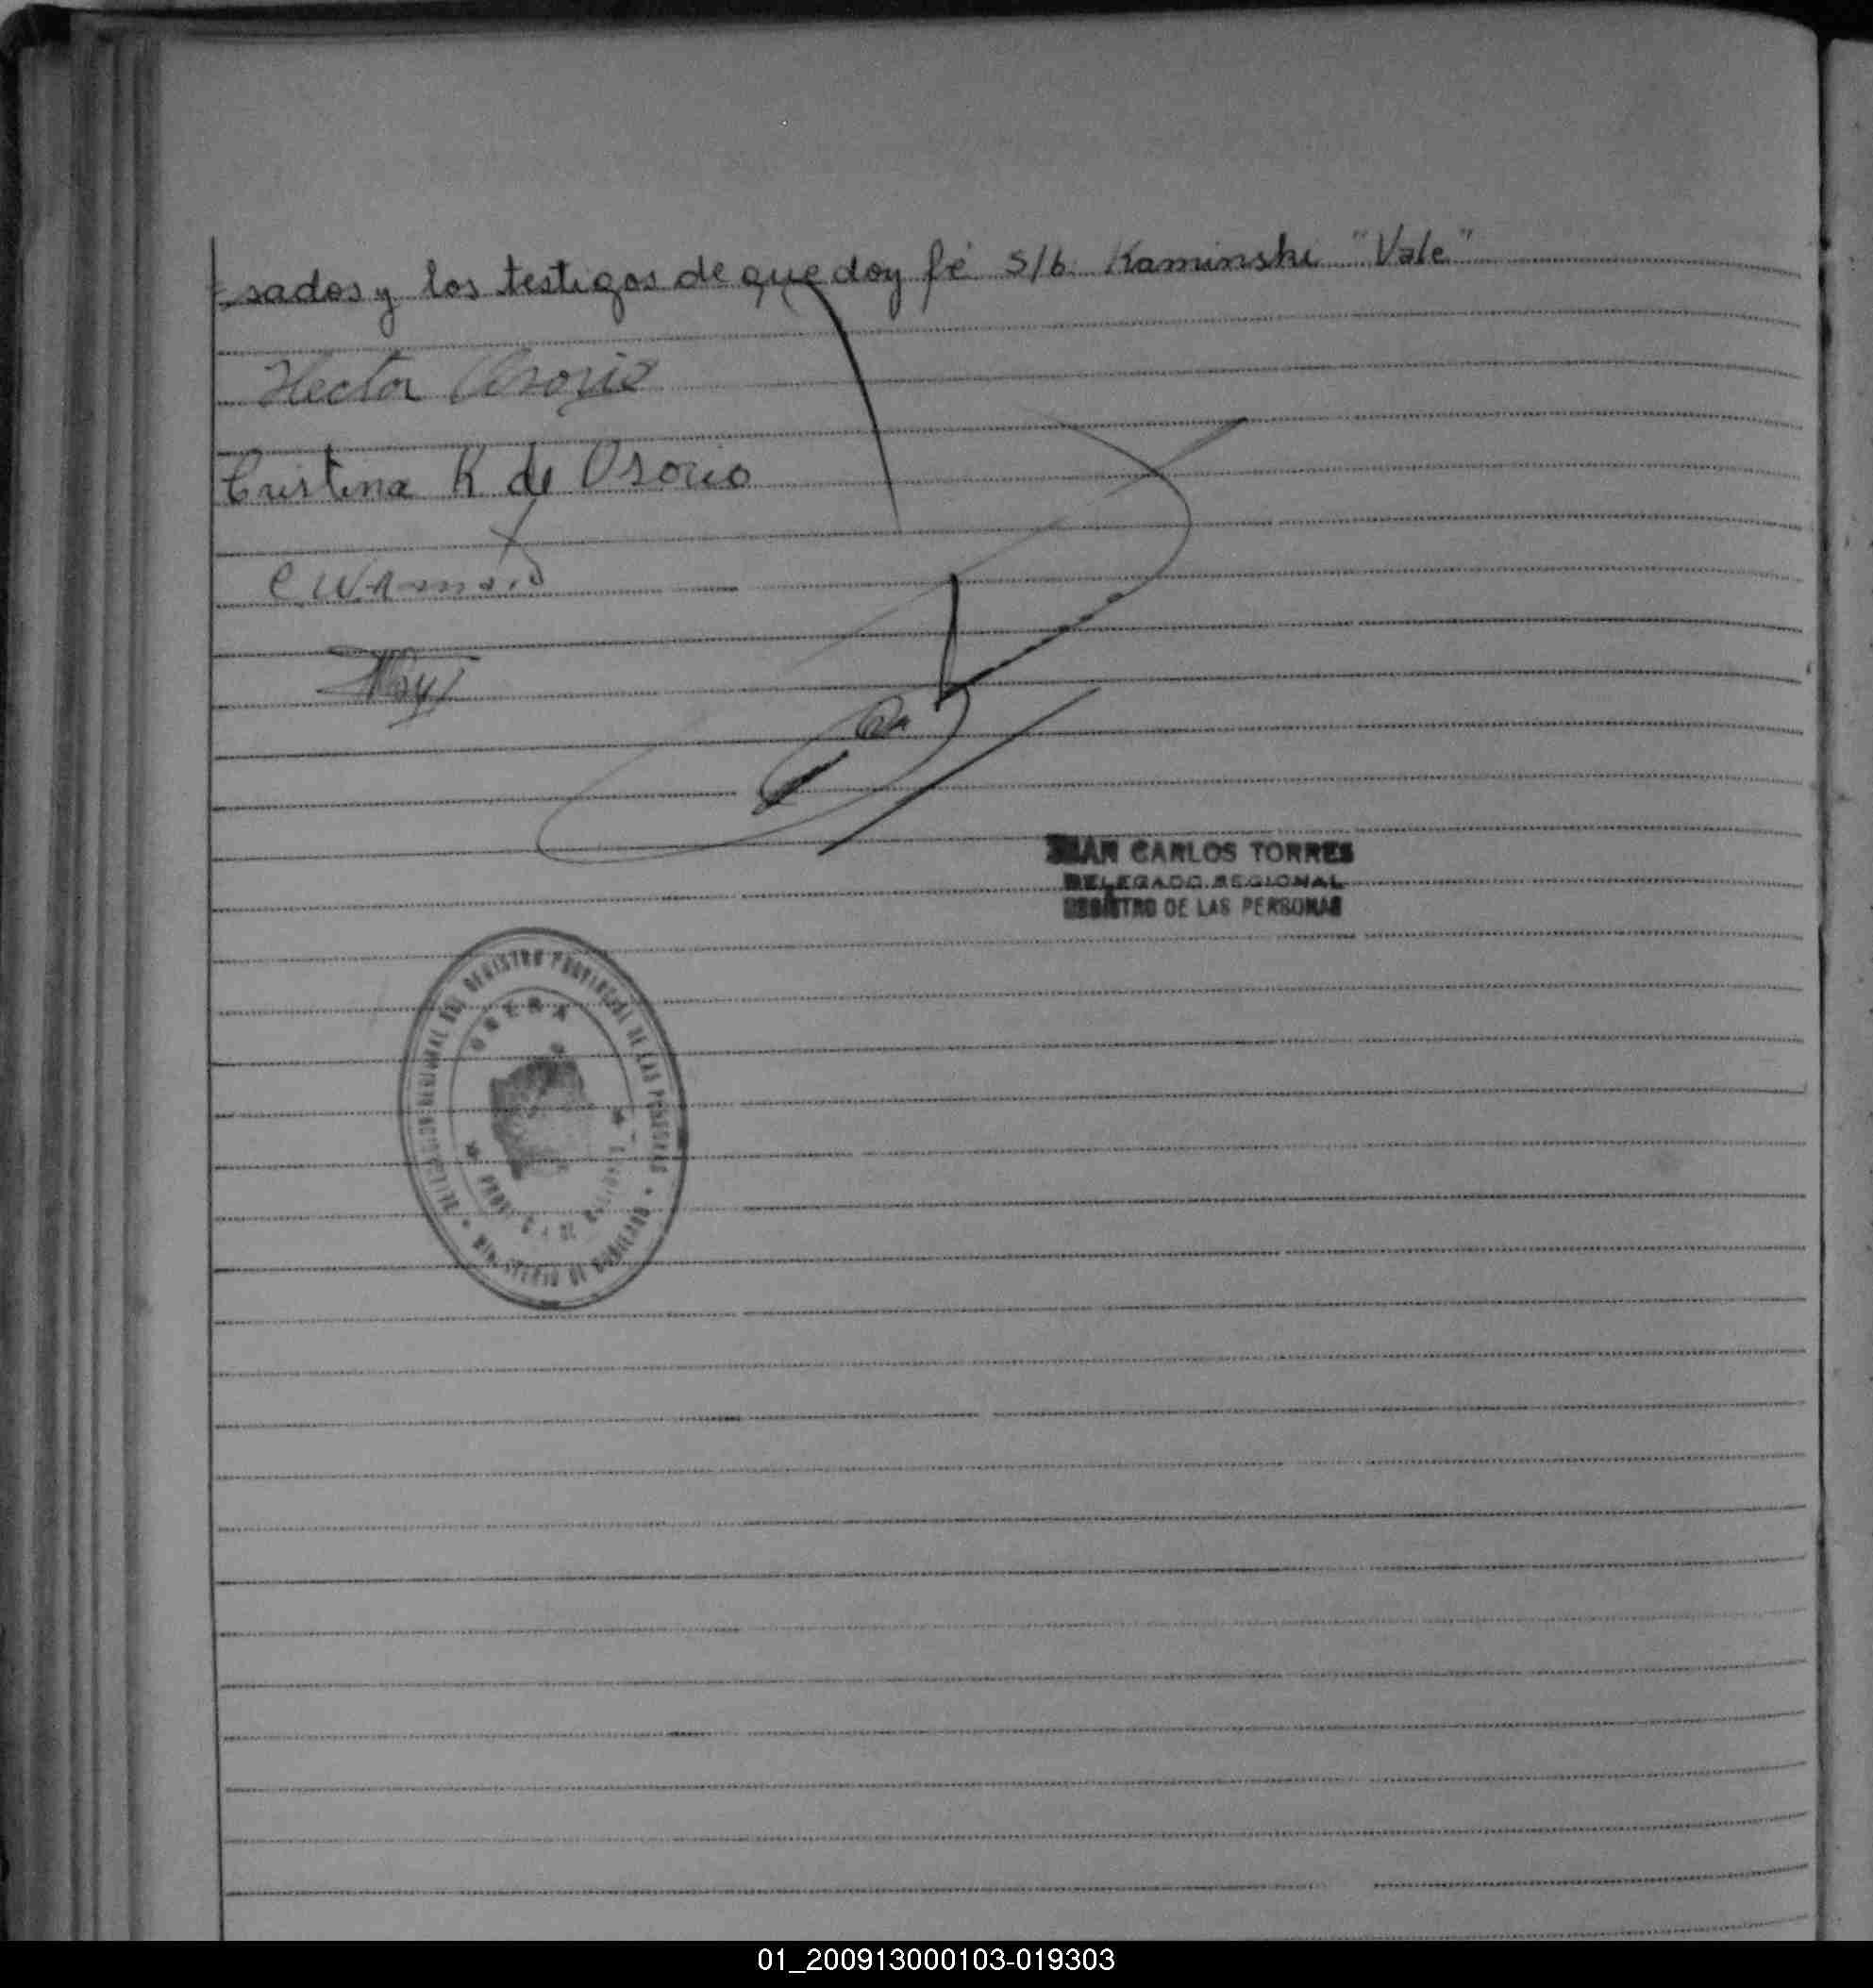 sados y los testigos de que doy fé S/b. Kaminski "Vale"
Hector Osorio
Cristina K de Osorio
JUAN CARLOS TORRES
DELEGADO REGIONAL
REGISTRO DE LAS PERSONAS
DELEGACION REGIONAL DEL REGISTRO PROVINCIAL DE LAS PERSONAS
OBERA
01_200913000103-019303